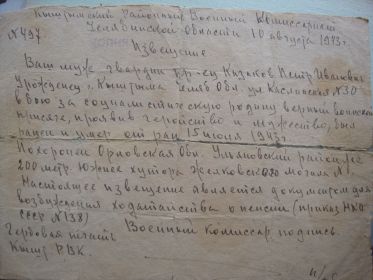 Кыштымский Районный Военный Комиссариат
Челябинской области 10 августа 1943 г.
№ 497
Извещение
Ваш муж гвардии кр-ец Казаков Петр Иванович
Уроженец г. Кыштыма Челяб Обл. ул Каслинская № 30
в бою за социалистическую родину верный воинской
присяге, проявив геройство и мужество, был
ранен и умер от ран 15 июля 1943 г.
Похоронен Орловская Обл. Ульяновский район
200 метр. Южнее хутора могила №1
Настоящее извещение является документом для
возбуждения ходатайства о пенсии (приказ НКО
СССР № 138)
Военный комиссар подпись.
Гербовая печать
Кыш. РВК.